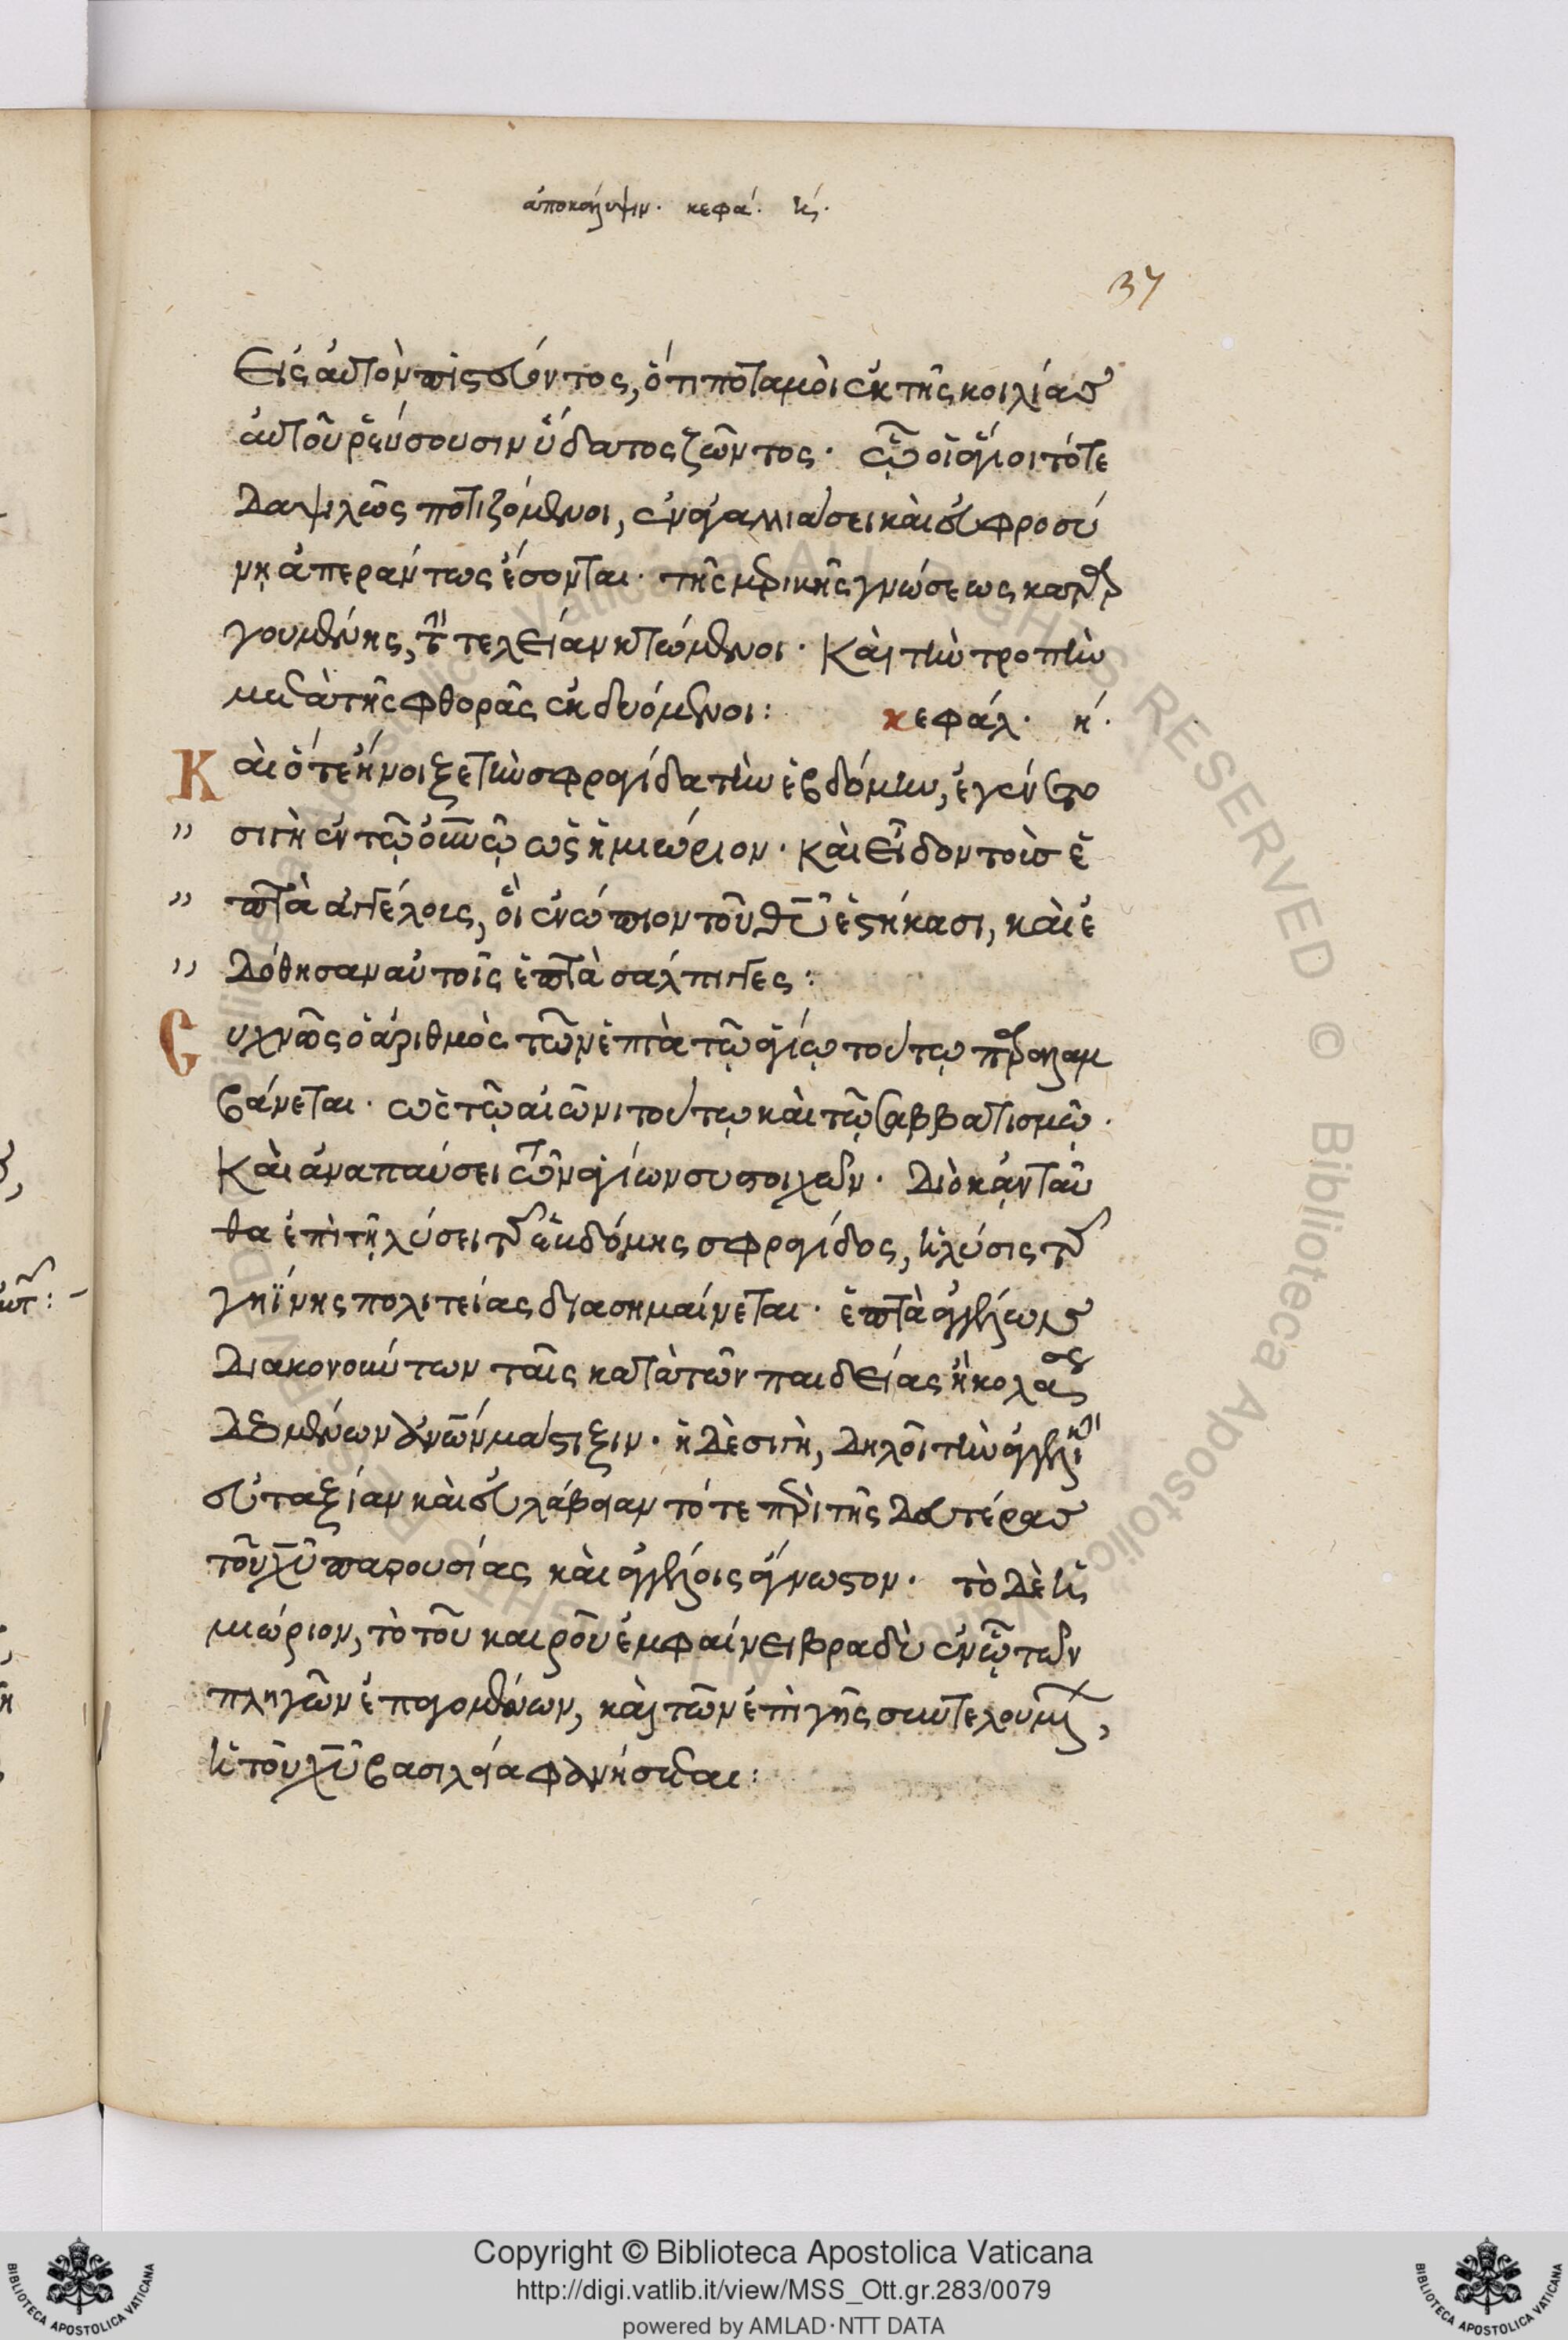 ἀποκάλυψιν. κεφά. κ´.
37
Εἰς αὐτὸν πιστεύοντος, ὅτι ποταμοὶ ἐκ τῆς κοιλίας
αὐτοῦ ῥεύσουσιν ὕδατος ζῶντος. ἐξ ὧν οἱ ἅγιοι τότε
δαψιλῶς ποτιζόμενοι, ἐν ἀγαλλιάσει καὶ εὐφροσύ
νῃ ἀπεράντως ἔσονται. τῆς μερικῆς γνώσεως καταρ
γουμένης, τὴν τελείαν κτώμενοι. Καὶ τὴν τροπὴν
μετὰ τῆς φθορᾶς ἐκδυόμενοι: κεφάλ. κ´.
Καὶ ὅτε ἤνοιξε τὴν σφραγίδα τὴν ἑβδόμην, ἐγένετο
" σιγὴ ἐν τῷ οὐνῷ ὡς ἡμιώριον. καὶ εἶδον τοὺς ἑ
" πτὰ ἀγγέλους, οἳ ἐνώπιον τοῦ θυ ἑστήκασι, καὶ ἐ
" δόθησαν αὐτοῖς ἑπτὰ σάλπιγγες:
Συχνῶς ὁ ἀριθμὸς τῶν ἑπτὰ τῷ ἁγίῳ τούτῳ παραλαμ
βάνεται. ὡς τῷ αἰῶνι τούτῳ καὶ τῷ σαββατισμῷ.
Καὶ ἀναπαύσει τῶν ἁγίων συστοιχῶν. Διὸ κἀνταῦ
θα ἐπὶ τῇ λύσει τῆς ἑβδόμης σφραγίδος, ἡ λύσις τῆς
γηΐνης πολιτείας διασημαίνεται. ἑπτὰ ἀγγέλων
διακονούντων ταῖς κατὰ τῶν παιδείας ἢ κολάσεως
δεομένων ἀνων μάστιξιν. ἡ δὲ σιγὴ, δηλοῖ τὴν ἀγγελικὴν
εὐταξίαν καὶ εὐλάβειαν τό τε περὶ τῆς δευτέρας
τοῦ χυ παρουσίας καὶ ἀγγέλοις ἄγνωστον. τὸ δὲ ἡ
μιώριον, τὸ τοῦ καιροῦ ἐμφαίνει βραδὺ ἐν ᾧ τῶν
πληγῶν ἐπαγομένων, καὶ τῶν ἐπὶ γῆς συντελουμένων,
ἡ τοῦ χυ βασιλεία φανήσεται:
Copyright © Biblioteca Apostolica Vaticana
http://digi.vatlib.it/view/MSS_Ott.gr.283/0079
powered by AMLAD·NTT DATA